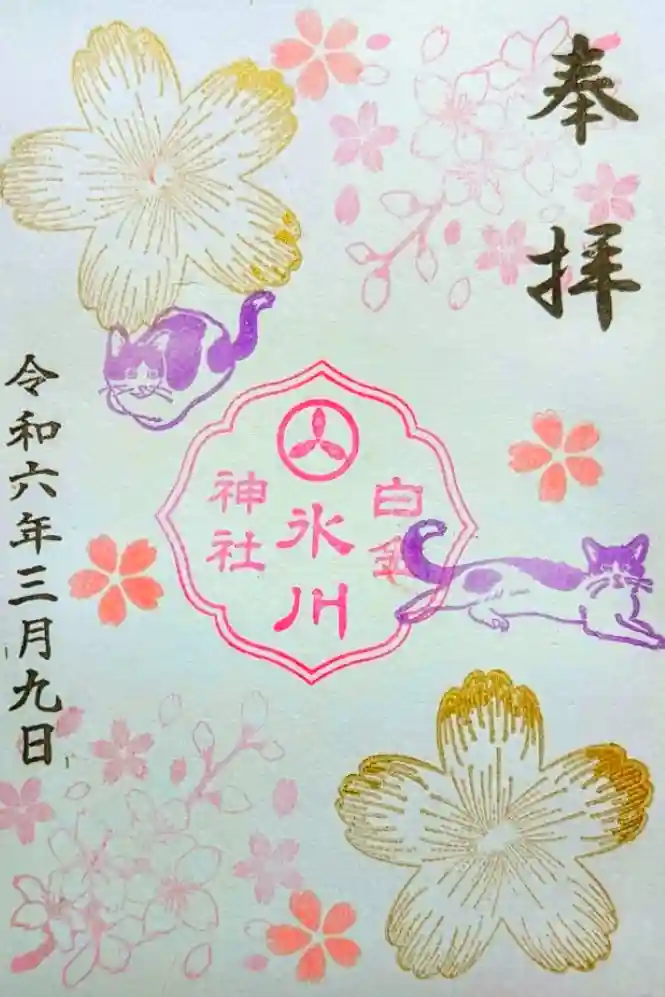 奉拝
白金
氷川
神社
令和六年三月九日